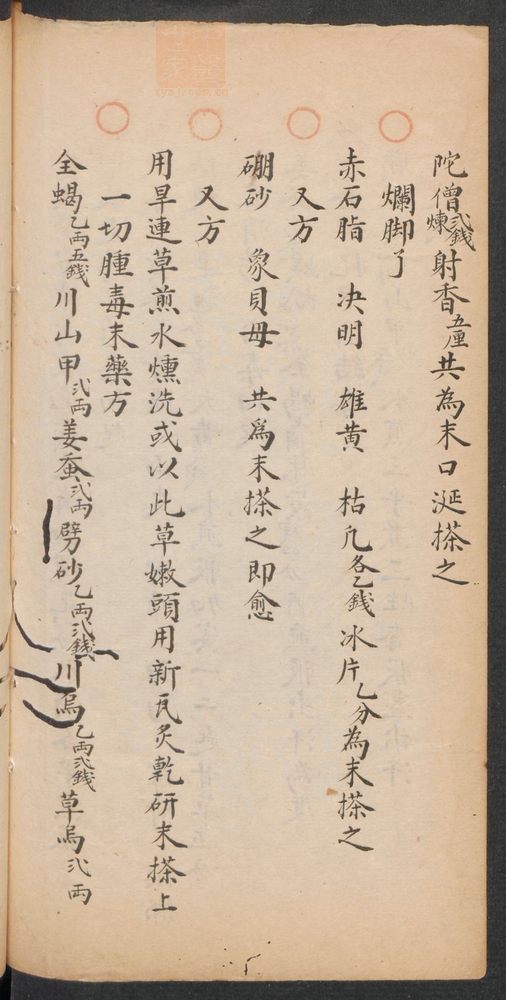 陀僧煉弍錢射香五厘共為末口涎搽之
爛脚了
赤石脂 决明 雄黄 枯凡各乙錢氷片乙分為末搽之
又方
硼砂 象貝母 共爲末搽之即愈
又方
用旱連草煎水燻洗或以此草嫩頭用新瓦炙乾研末搽上
一切腫毒末藥方
全蝎乙兩五錢川山甲弍兩姜蚕弍兩劈砂乙兩弍錢川烏乙兩弍錢草烏弍兩